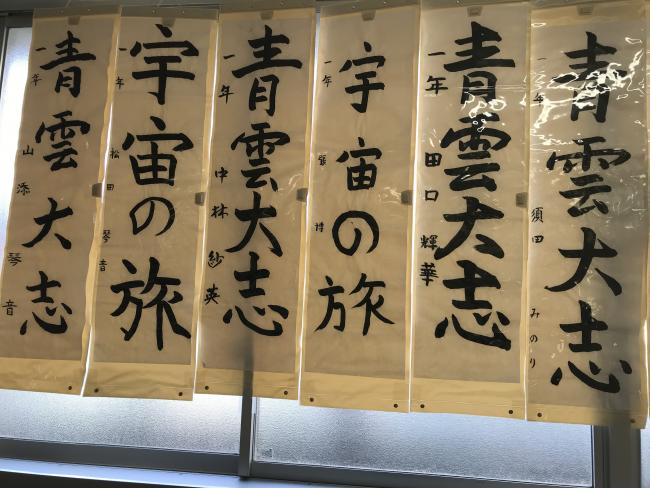 青雲大志
一年 須田 みのり
青雲大志
一年 田口 輝華
宇宙の旅
一年
青雲大志
一年 中林 紗英
宇宙の旅
一年 松田 琴音
青雲大志
一年 山添 琴音